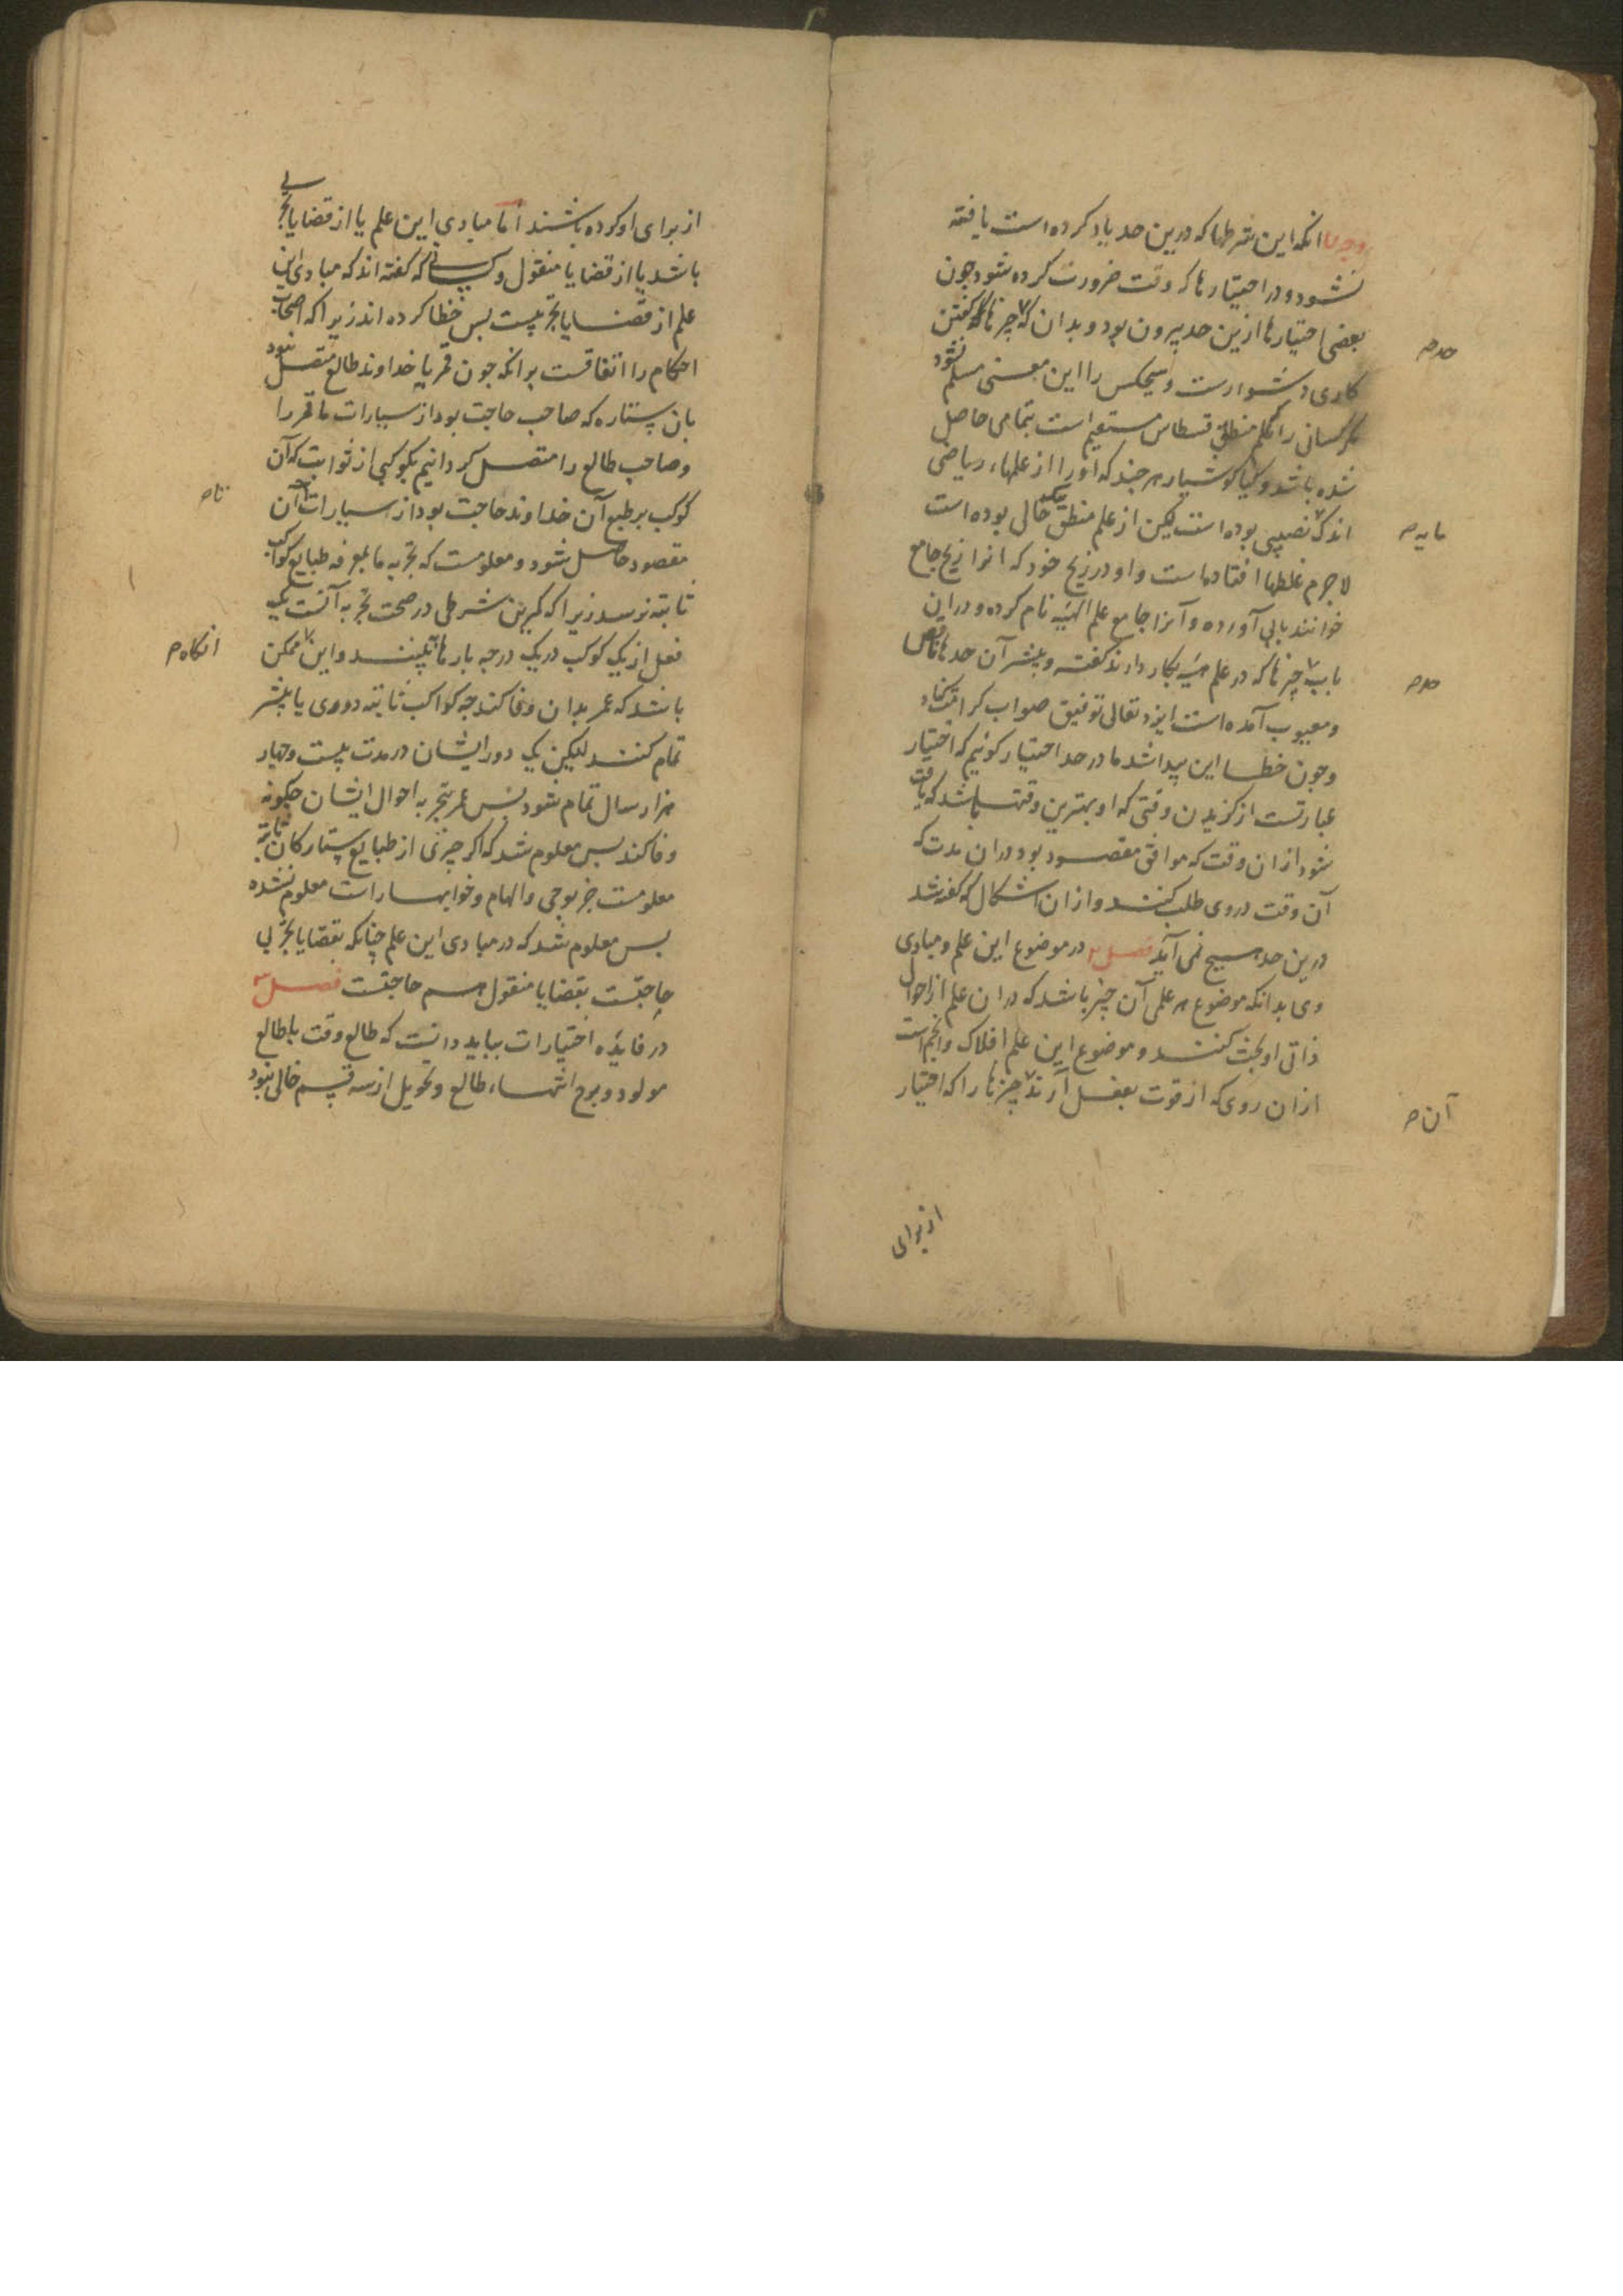 وجه انکه این شرطها که درین حد یاد کرده است یافته
نشود و در اختیارها که وقت ضرورت کرده شود چون
بعضی اختیارها ازین حد بیرون بود و بدان که چیزها گفتن
حد ص
کاری دشوارست و هیچکس را این معنی مسلم نشود
مکر کسانی را که علم منطق قسطاس مستقیم است بتمامی حاصل
شده باشد و کیا کوشیار هر چند که او را از علمهاء ریاضی
اندک نصیبی بوده است لیکن از علم منطق خالی بوده است
مایه ص
لاجرم غلطها افتادماست و او در زیج خود که انرا زیج جامع
خوانند بابی آورده و آنرا جامع علم الهیئه نام کرده و دران
باب چیزها که در علم هیئه بکار دارند کفته و بیشتر آن حدها ناقص
حد ص
و معیوب آمده است ایزد تعالی توفیق صواب کرامت کناد
و چون خطا این پیدا شد ما در حد اختیار کوئیم که اختیار
عبارتست از کزیدن وقتی که او بهترین وقتها باشد که یافت
شود ازان وقت که موافق مقصود بود دران مدت که
آن وقت در وی طلب کنند و ازان اشکال که کفته شد
درین حد هیچ نمی آید فصل ۲ در موضوع این علم و مبادی
وی بدانکه موضوع هر علمی آن چیز باشد که دران علم از احوال
ذاتی او بحث کنند و موضوع این علم افلاک و انجم است
ازان روی که از قوت بفعل آرند چیزها را که اختیار
آن ص
از برای
از برای او کرده باشند اما مبادی این علم یا از قضایا تجربی
باشد یا از قضایا منقول و کسانی که کفته اند که مبادی این
علم از قضایا تجربیست بس خطا کرده اند زیرا که اصحاب
احکام را اتفاقست برانکه جون قمر یا خداوند طالع متصل نبود
بان ستاره که صاحب حاجت بود از سیارات ما قمر را
و صاحب طالع را متصل کردانیم بکوکبی از ثوابت که آن
کوکب بر طبع آن خداوند حاجت بود از سیارات آن
تا ص
مقصود حاصل شود و معلومست که تجربه ما بمعرفه طبایع کواکب
ثابته نرسد زیرا که کمترین شرطی در صحت تجربه آنست که یک
فعل از یک کوکب در یک درجه بارها ببینند و این ممکن
انکاه ص
باشد که عمر بدان وفا کند چه کواکب ثابته دوری یا بیشتر
تمام کنند لیکن یک دور ایشان در مدت بیست و چهار
هزار سال تمام شود بس عمر بتجربه احوال ایشان چکونه
وفا کند بس معلوم شد که اکر چیزی از طبایع ستارکان ثابته
معلومست جز بوحی و الهام و خوابها راست معلوم نشده
بس معلوم شد که در مبادی این علم چنانکه بقضایا تجربی
حاجتست بقضایا منقول هم حاجتست فصل ۳
در فایده اختیارات بباید دانست که طالع وقت با طالع
مولود و برج انتهاء طالع و تحویل از سه قسم خالی نبود